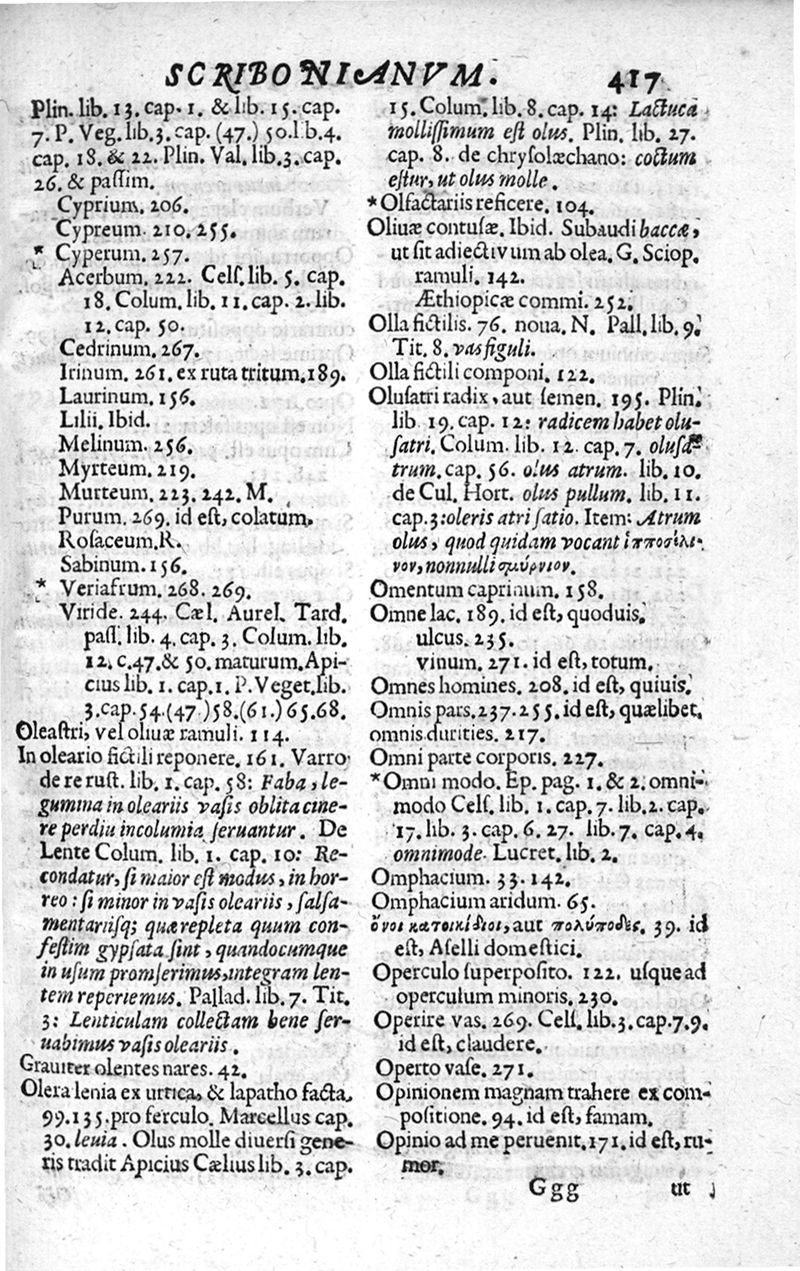 SCRIBONIANVM. 417
Plin. lib. 13. cap. 1. & lib. 15. cap.
7. P. Veg. lib. 3. cap. (47.) 50. l b. 4.
cap. 18. & 22. Plin. Val. lib. 3. cap.
26. & paſſim.
Cyprium. 206.
Cypreum. 210. 255.
* Cyperum. 257.
Acerbum. 222. Celſ. lib. 5. cap.
18. Colum. lib. 11. cap. 2. lib.
12. cap. 50.
Cedrinum. 267.
Irinum. 261. ex ruta tritum. 189.
Laurinum. 156.
Lilii. Ibid.
Melinum. 256.
Myrteum. 219.
Murteum. 223. 242. M.
Purum. 269. id eſt, colatum.
Roſaceum. R.
Sabinum. 156.
* Veriafrum. 268. 269.
Viride. 244. Cæl. Aurel. Tard.
paſſ. lib. 4. cap. 3. Colum. lib.
12. c. 47. & 50. maturum. Api-
cius lib. 1. cap. 1. P. Veget. lib.
3. cap. 54. (47) 58. (61.) 65. 68.
Oleaſtri, vel oliuæ ramuli. 114.
In oleario fictili reponere. 161. Varro
de re ruſt. lib. 1. cap. 58: Faba, le-
gumina in oleariis vaſis oblita cine-
re perdiu incolumia ſeruantur. De
Lente Colum. lib. 1. cap. 10: Re-
condatur, ſi maior eſt modus, in hor-
reo: ſi minor in vaſis oleariis, ſalſa-
mentariiſq; quæ repleta quum con-
feſtim gypſata ſint, quandocumque
in uſum promſerimus, integram len-
tem reperiemus. Pallad. lib. 7. Tit.
3: Lenticulam collectam bene ſer-
uabimus vaſis oleariis.
Grauiter olentes nares. 42.
Olera lenia ex urtica, & lapatho facta.
99. 135. pro ferculo. Marcellus cap.
30. leuia. Olus molle diuerſi gene-
ris tradit Apicius Cælius lib. 3. cap.
15. Colum. lib. 8. cap. 14: Lactuca
molliſſimum eſt olus. Plin. lib. 27.
cap. 8. de chryſolæchano: coctum
eſtur, ut olus molle.
* Olfactariis reficere. 104.
Oliuæ contuſæ. Ibid. Subaudi baccæ,
ut ſit adiectivum ab olea. G. Sciop.
ramuli. 142.
Æthiopicæ commi. 252.
Olla fictilis. 76. noua. N. Pall. lib. 9.
Tit. 8. vas figuli.
Olla fictili componi. 122.
Oluſatri radix, aut ſemen. 195. Plin.
lib 19. cap. 12: radicem habet olu-
ſatri. Colum. lib. 12. cap. 7. oluſa-
trum. cap. 56. olus atrum. lib. 10.
de Cul. Hort. olus pullum. lib. 11.
cap. 3: oleris atri ſatio. Item: Atrum
olus, quod quidam vocant ἱπποσέλι-
νον, nonnulli σμύρνιον.
Omentum caprinum. 158.
Omne lac. 189. id eſt, quoduis.
ulcus. 235.
vinum. 271. id eſt, totum.
Omnes homines. 208. id eſt, quiuis.
Omnis pars. 237. 255. id eſt, quælibet.
omnis durities. 217.
Omni parte corporis. 227.
* Omni modo. Ep. pag. 1. & 2. omni-
modo Celſ. lib. 1. cap. 7. lib. 2. cap.
17. lib. 3. cap. 6. 27. lib. 7. cap. 4.
omnimode. Lucret. lib. 2.
Omphacium. 33. 142.
Omphacium aridum. 65.
ὄνοι κατοικίδιοι, aut πολύποδες. 39. id
eſt, Aſelli domeſtici.
Operculo ſuperpoſito. 122. uſque ad
operculum minoris. 230.
Operire vas. 269. Celſ. lib. 3. cap. 7. 9.
id eſt, claudere.
Operto vaſe. 271.
Opinionem magnam trahere ex com-
poſitione. 94. id eſt, famam.
Opinio ad me peruenit. 171. id eſt, ru-
mor.
Ggg ut